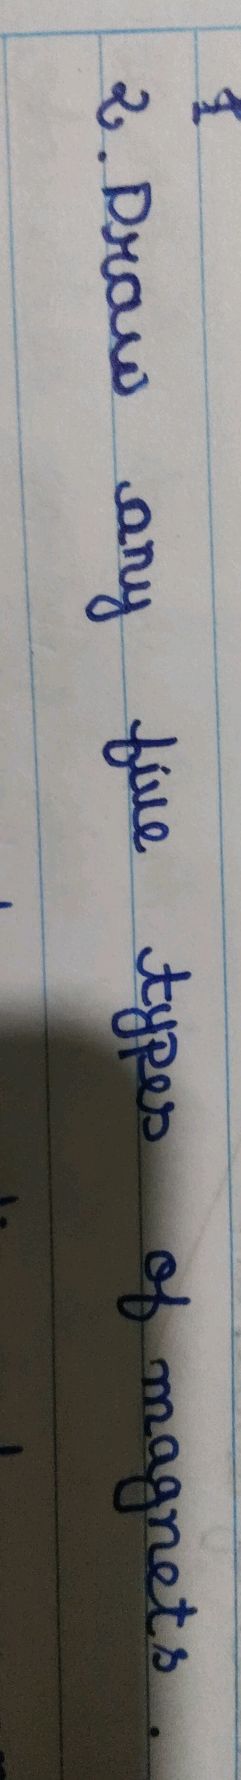 2. Draw any five types of magnets.